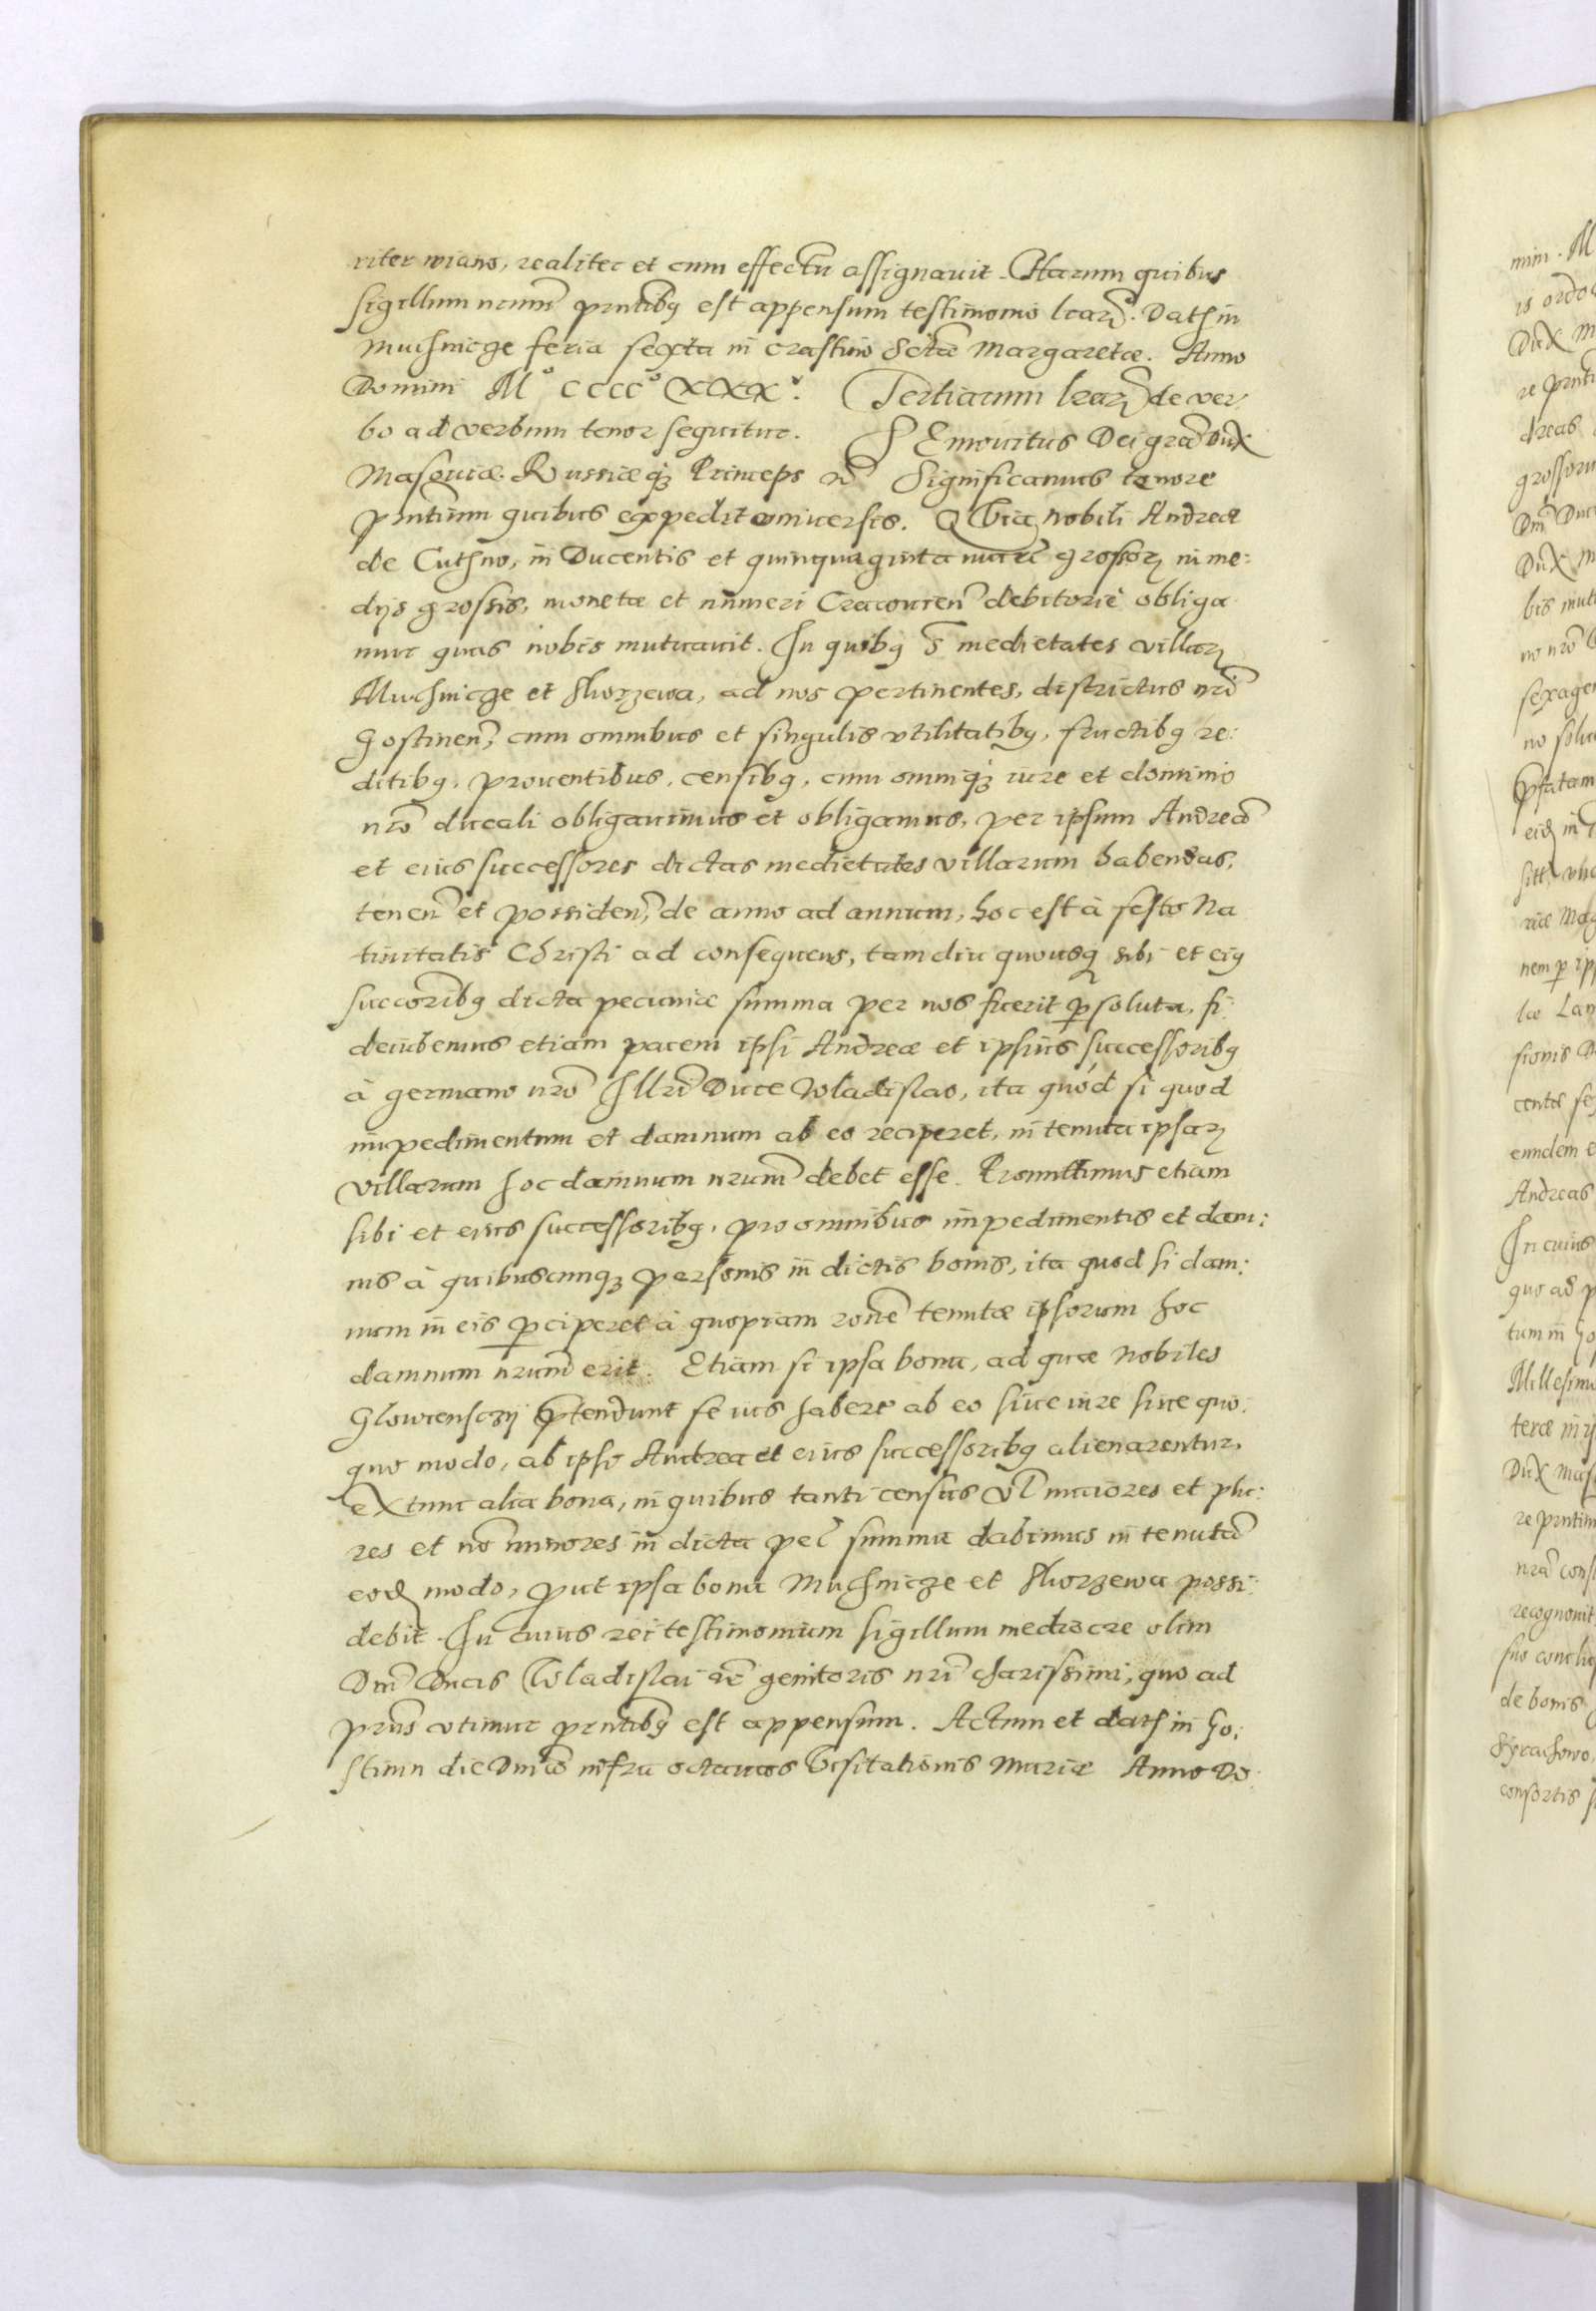 riter mians, realiter et cum effectu assignauit. Harum quibus
sigillum nrum̃ pntibus est appensum testimonio lrarũ. Dath in
Muchnicze feria sexta in crastino Sctæ Margaretæ. Anno
Domini M° CCCC° XXX°. Tertiarum lrarũ de ver
bo ad verbum tenor sequitur. SEmouitus Dei gra Dux
Masouiæ Russiæq; Princeps etc̃ Significamus tenore
pntium quibus expedit vniuersis. Quia nobili Andreæ
de Cuthno, in Ducentis et quinquaginta marc̃ grossorȝ in me:
dijs grossis, monetæ et numeri Cracouien̄ debitorie obliga
mur quas nobis mutuauit. In quibȝ medietates villarȝ
Muchnicze et Skorzewa, ad nos pertinentes, districtus nri
Gostinen̄, cum omnibus et singulis vtilitatibȝ, fructibȝ re:
ditibȝ, prouentibus, censibȝ, cum omniq; iure et dominio
nro ducali obligauimus et obligamus, per ipsum Andreã
et eius successores dictas medietates villarum habendas,
tenen̄ et possiden̄, de anno ad annum, hoc est à festo Na
tiuitatis Christi ad consequens, tamdiu quousqȝ sibi et eiȝ
succoribȝ dicta pecuniæ summa per nos fuerit psoluta, fi:
deiubemus etiam pacem ipsi Andreæ et ipsius successoribȝ
à germano nro Illri Duce Wladislao, ita quód si quod
impedimentum et damnum ab eo reciperet, in tenuta ipsarȝ
villarum hoc damnum nrum̃ debet esse. Promittimus etiam
sibi et eius successoribȝ, pro omnibus impedimentis et dam:
nis à quibuscunqȝ personis in dictis bonis, ita quod si dam:
num in eis pciperet à quopiam rone tenutæ ipsorum hoc
damnum nrum̃ erit. Etiam si ipsa bona, ad quæ Nobiles
Glowiensczij ptendunt se ius habere ab eo siue iure siue quo:
quo modo, ab ipso Andrea et eius successoribȝ alienarentur,
extunc alia bona, in quibus tanti census vl maiores et plu:
res et nõ minores in dicta pec̃ summa dabimus in tenutã
eod̃ modo, put ipsa bona Muchnicze et Skorzewa possi:
debit. In cuius rei testimonium sigillum mediocre olim
Dni Ducis Wladislai etc̃ genitoris nri charissimi, quo ad
prns vtimur pntibȝ est appensum. Actum et dath in Go:
stinin die Dnicõ infra octauas Visitationis Mariæ Anno Do: